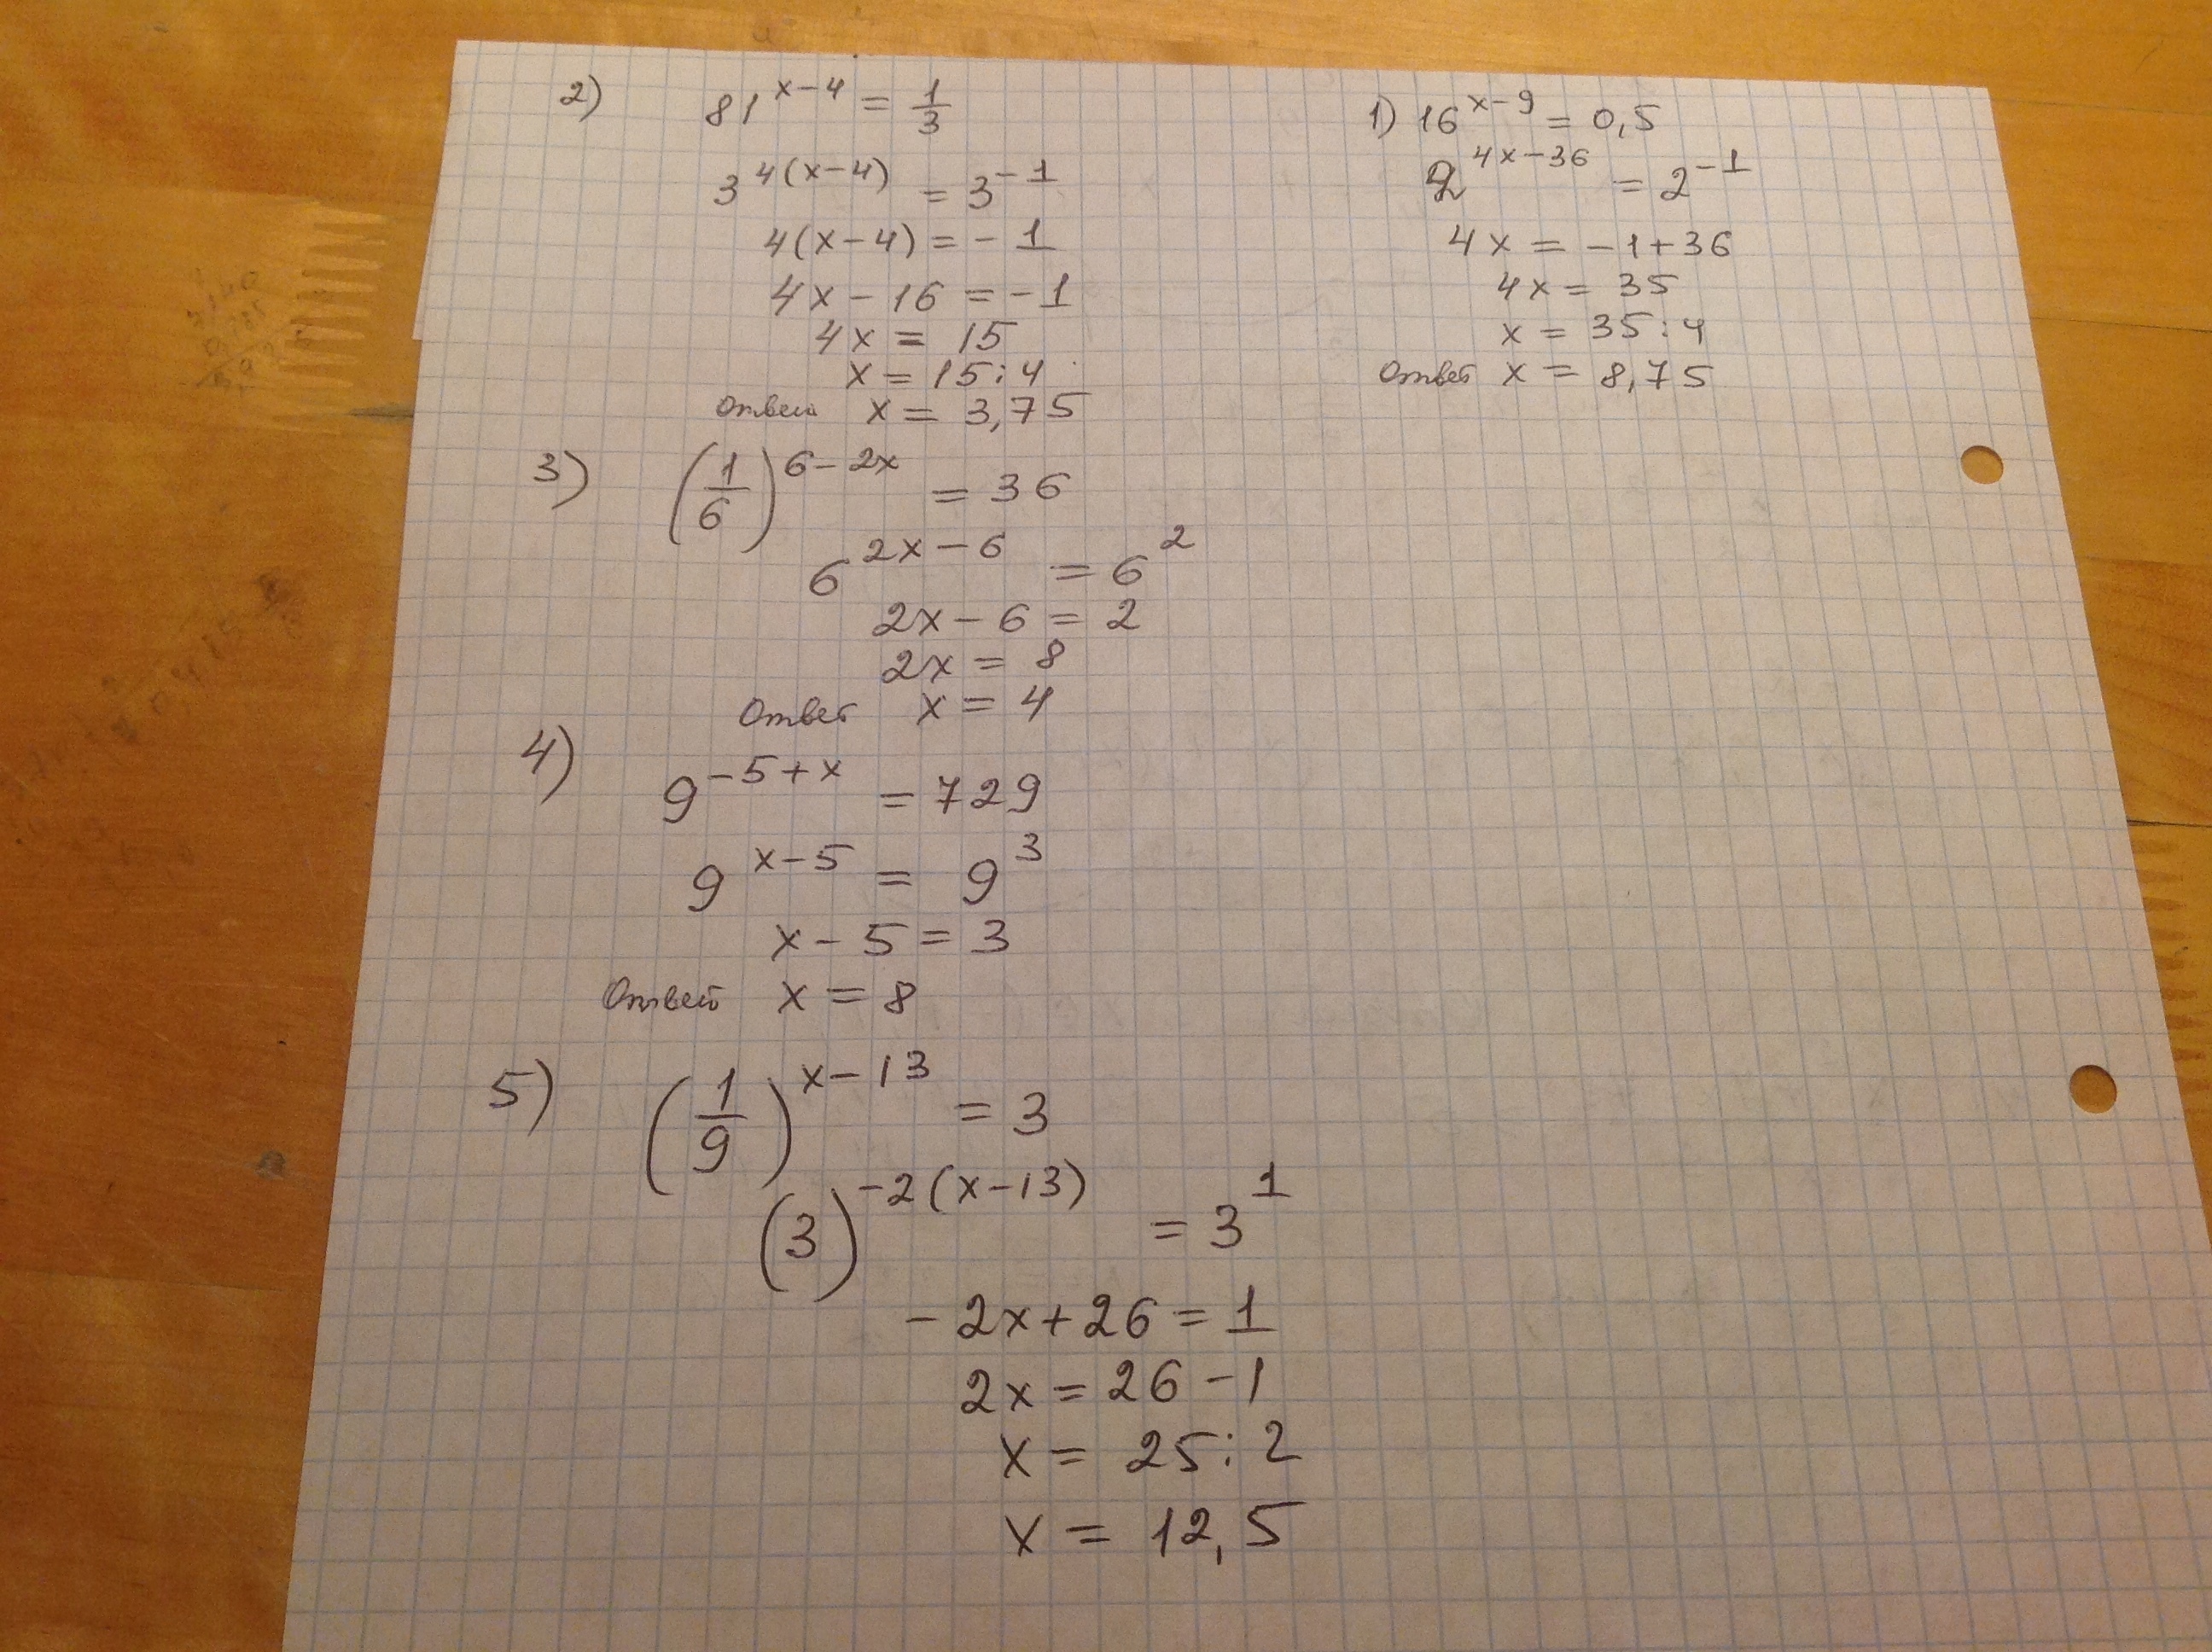 2) 81^(x-4) = 1/3
3^(4(x-4)) = 3^(-1)
4(x-4) = -1
4x - 16 = -1
4x = 15
x = 15:4
Ответ x = 3,75
1) 16^(x-9) = 0,5
2^(4x-36) = 2^(-1)
4x = -1+36
4x = 35
x = 35:4
Ответ x = 8,75
3) (1/6)^(6-2x) = 36
6^(2x-6) = 6^2
2x - 6 = 2
2x = 8
Ответ x = 4
4) 9^(-5+x) = 729
9^(x-5) = 9^3
x - 5 = 3
Ответ x = 8
5) (1/9)^(x-13) = 3
(3)^(-2(x-13)) = 3^1
-2x+26 = 1
2x = 26-1
x = 25:2
x = 12,5